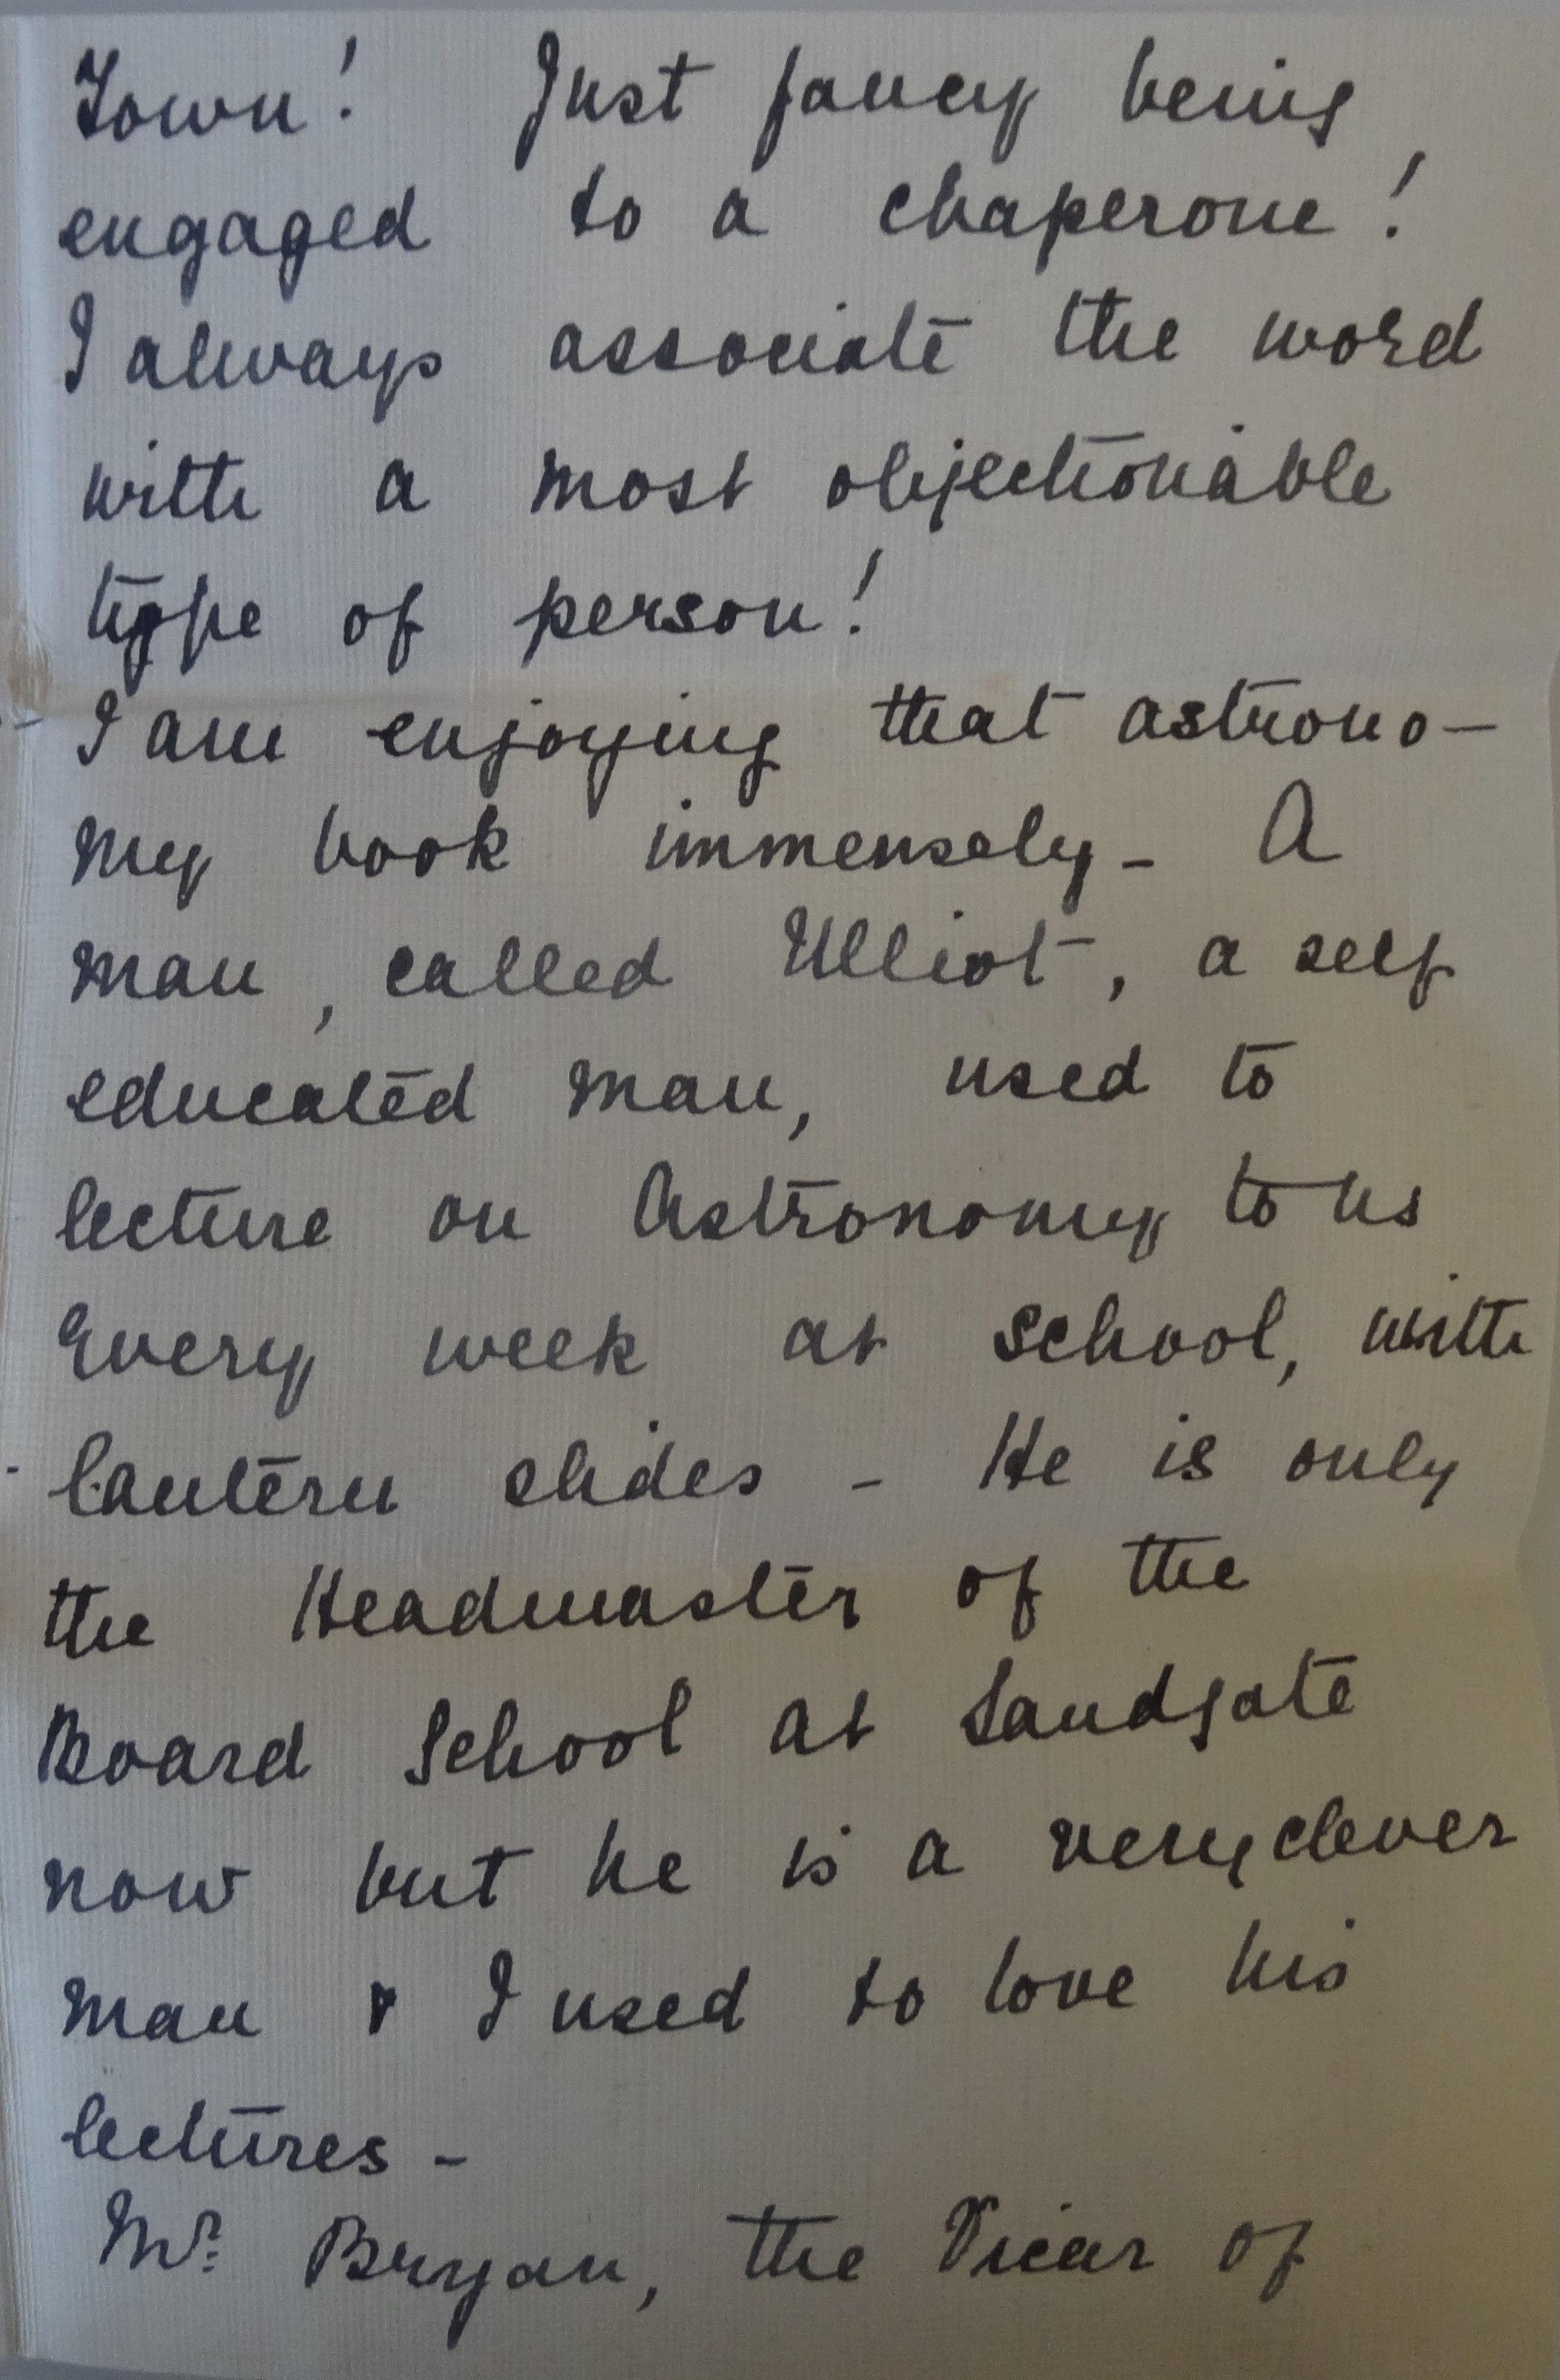 Town! Just fancy being
engaged to a chaperone!
I always associate the word
with a most objectionable
type of person!
I am enjoying that astrono-
my book immensely - A
man, called Ulliot, a self
educated man, used to
lecture on Astronomy to us
every week at school, with
lantern slides - He is only
the Headmaster of the
Board School at Sandgate
now but he is a very clever
man & I used to love his
lectures -
Mr. Bryan, the Vicar of